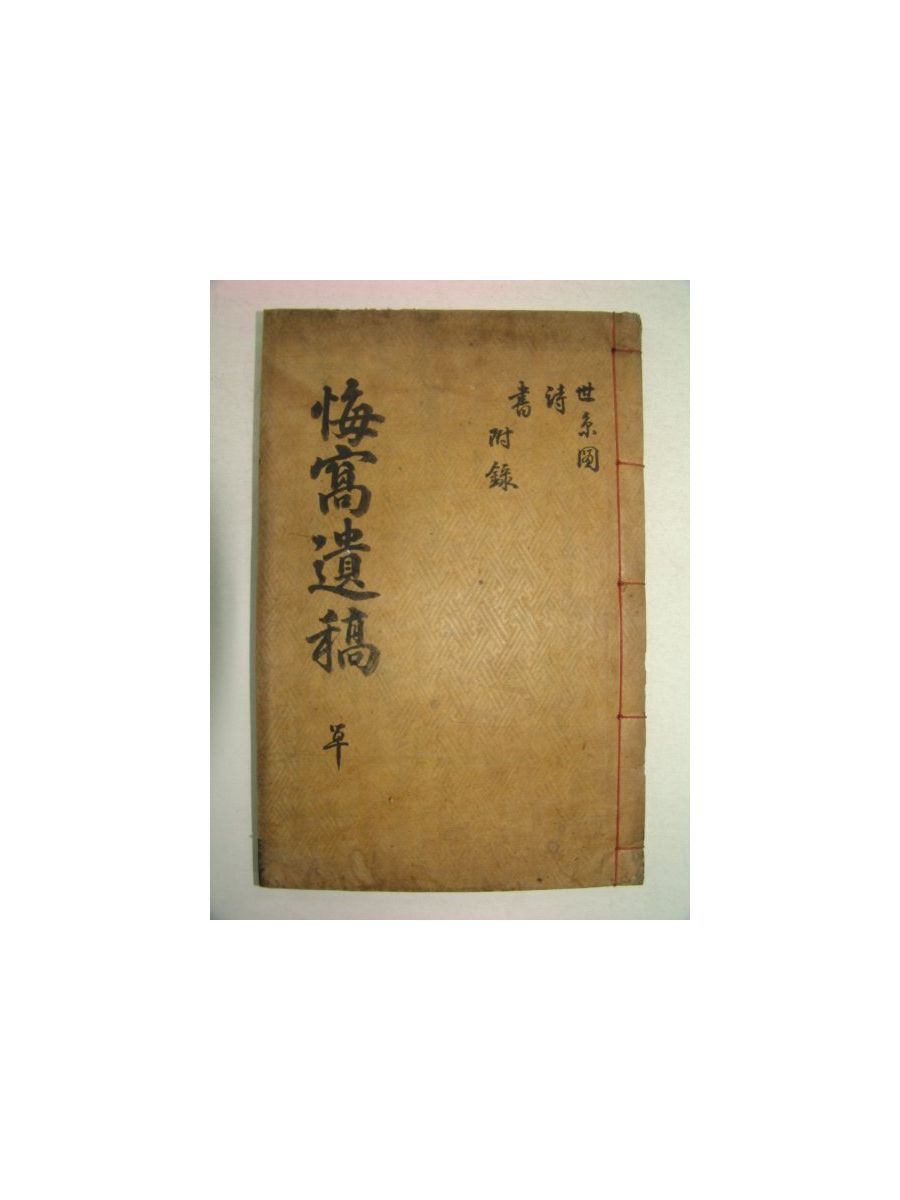 世系圖
詩
書
附錄
悔窩遺稿
草